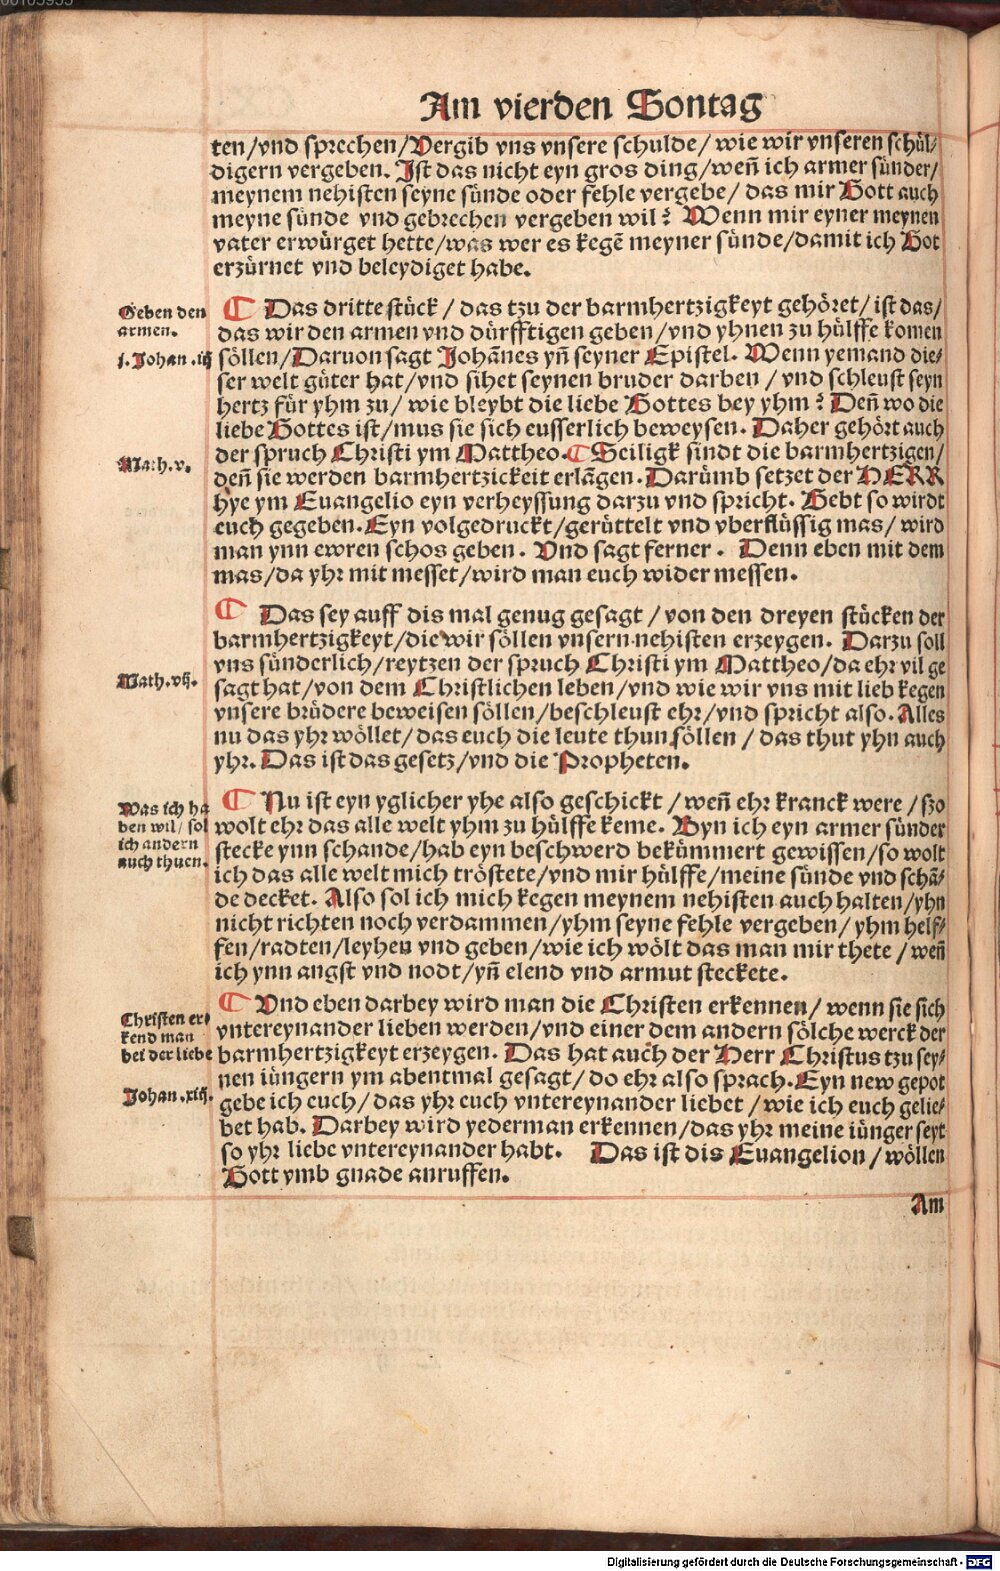 Am vierden Sontag
ten/vnd sprechen/Vergib vns vnsere schulde/wie wir vnseren schül-
digern vergeben. Ist das nicht eyn gros ding/weñ ich armer sünder/
meynem nehisten seyne sünde oder fehle vergebe/das mir Gott auch
meyne sünde vnd gebrechen vergeben wil? Wenn mir eyner meynen
vater erwürget hette/was wer es kegẽ meyner sünde/damit ich Got
erzürnet vnd beleydiget habe.
Geben den
armen.
1. Johan .iij
¶ Das dritte stück/das tzu der barmhertzigkeyt gehöret/ist das/
das wir den armen vnd dürfftigen geben/vnd yhnen zu hülffe komen
söllen/Daruon sagt Johãnes yñ seyner Epistel. Wenn yemand die-
ser welt güter hat/vnd sihet seynen bruder darben/vnd schleust seyn
hertz für yhm zu/wie bleybt die liebe Gottes bey yhm? Deñ wo die
liebe Gottes ist/mus sie sich eusserlich beweysen. Daher gehört auch
Math.v.
der spruch Christi ym Mattheo. ¶ Seiligk sindt die barmhertzigen/
deñ sie werden barmhertzickeit erlãgen. Darümb setzet der HERR
hye ym Euangelio eyn verheyssung darzu vnd spricht. Gebt so wirdt
euch gegeben. Eyn volgedruckt/gerüttelt vnd vberflüssig mas/wird
man ynn ewren schos geben. Vnd sagt ferner. Denn eben mit dem
mas/da yhr mit messet/wird man euch wider messen.
¶ Das sey auff dis mal genug gesagt/von den dreyen stücken der
barmhertzigkeyt/die wir söllen vnsern nehisten erzeygen. Darzu soll
vns sünderlich/reytzen der spruch Christi ym Mattheo/da ehr vil ge
Math.vij.
sagt hat/von dem Christlichen leben/vnd wie wir vns mit lieb kegen
vnsere brüdere beweisen söllen/beschleust ehr/vnd spricht also. Alles
nu das yhr wöllet/das euch die leute thun söllen/das thut yhn auch
yhr. Das ist das gesetz/vnd die Propheten.
Was ich ha
ben wil/sol
ich andern
auch thuen.
¶ Nu ist eyn yglicher yhe also geschickt/weñ ehr kranck were/szo
wolt ehr das alle welt yhm zu hülffe keme. Byn ich eyn armer sünder
stecke ynn schande/hab eyn beschwerd bekümmert gewissen/so wolt
ich das alle welt mich tröstete/vnd mir hülffe/meine sünde vnd schã-
de decket. Also sol ich mich kegen meynem nehisten auch halten/yhn
nicht richten noch verdammen/yhm seyne fehle vergeben/yhm helf-
fen/radten/leyhen vnd geben/wie ich wölt das man mir thete/weñ
ich ynn angst vnd nodt/yñ elend vnd armut steckete.
Christen er-
kend man
bei der liebe
¶ Vnd eben darbey wird man die Christen erkennen/wenn sie sich
vntereynander lieben werden/vnd einer dem andern sölche werck der
barmhertzigkeyt erzeygen. Das hat auch der Herr Christus tzu sey-
Johan .xiij.
nen iüngern ym abentmal gesagt/do ehr also sprach. Eyn new gepot
gebe ich euch/das yhr euch vntereynander liebet/wie ich euch gelie-
bet hab. Darbey wird yederman erkennen/das yhr meine iünger seyt
so yhr liebe vntereynander habt. Das ist dis Euangelion/wöllen
Gott vmb gnade anruffen.
Am
Digitalisierung gefördert durch die Deutsche Forschungsgemeinschaft - DFG